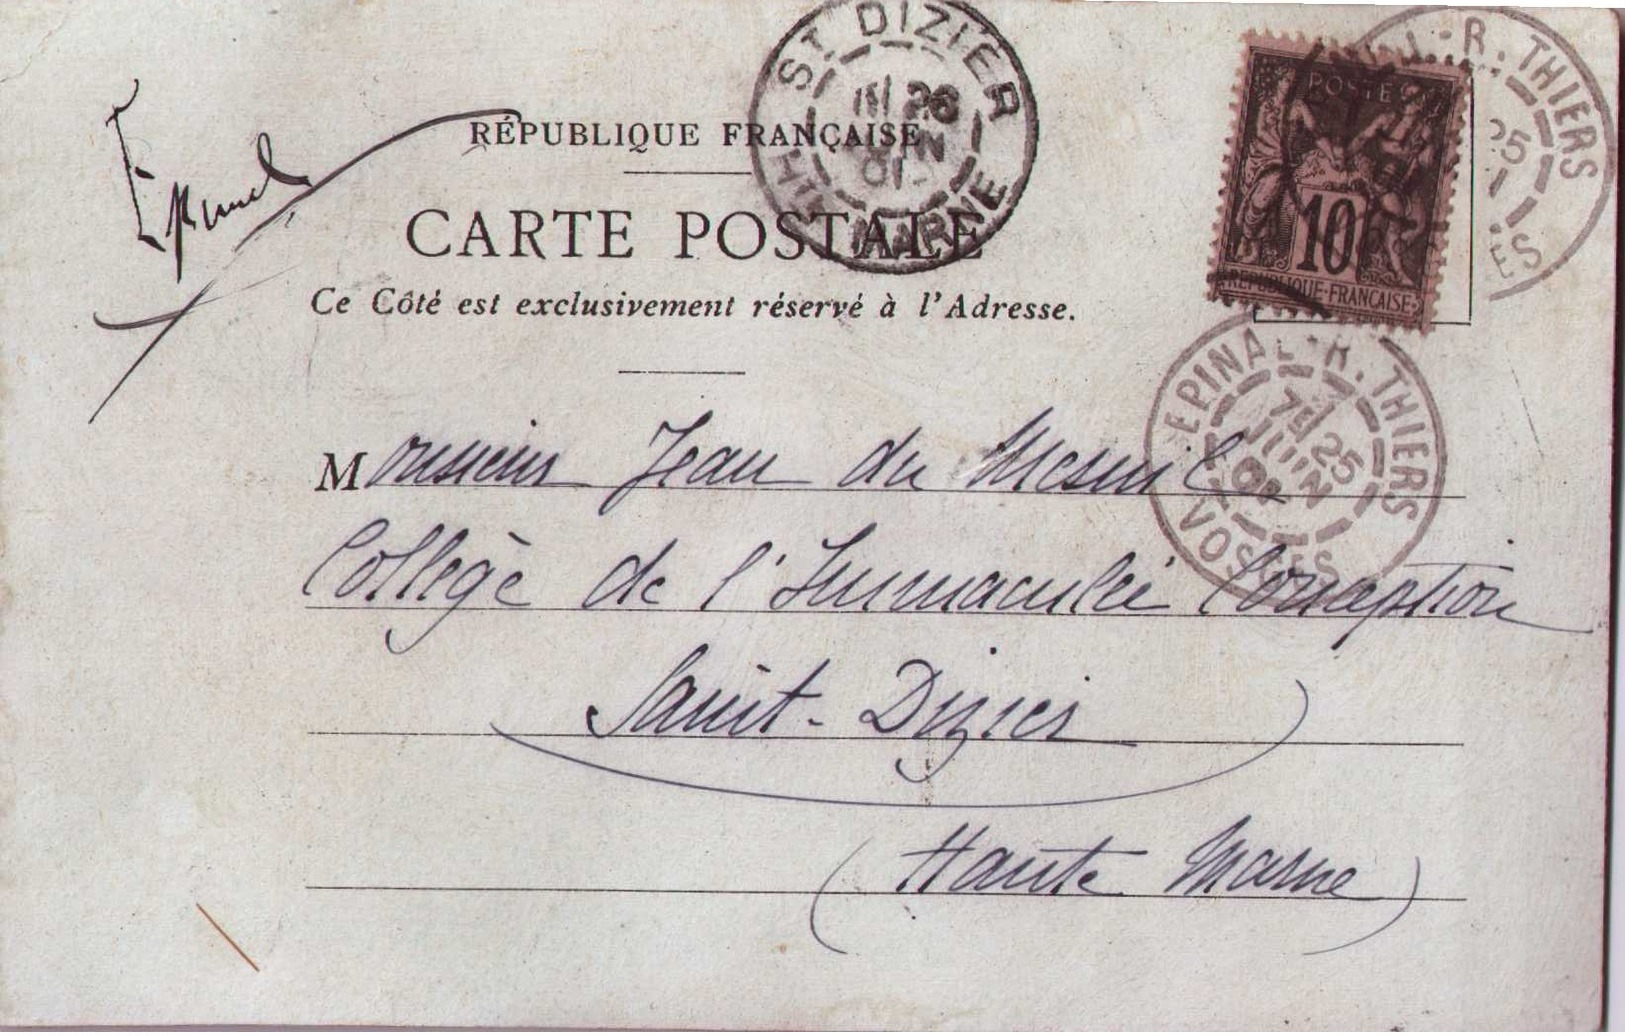 Épinal
RÉPUBLIQUE FRANÇAISE
CARTE POSTALE
Ce Côté est exclusivement réservé à l'Adresse.
ST DIZIER
26
JUIN
01
HTE MARNE
POSTE
10
REPUBLIQUE-FRANÇAISE
R. THIERS
25
EPINAL-R. THIERS
7E 25
JUIN
01
VOSGES
Monsieur Jean du Mesnil
Collège de l'Immaculée Conception
Saint-Dizier
(Haute Marne)